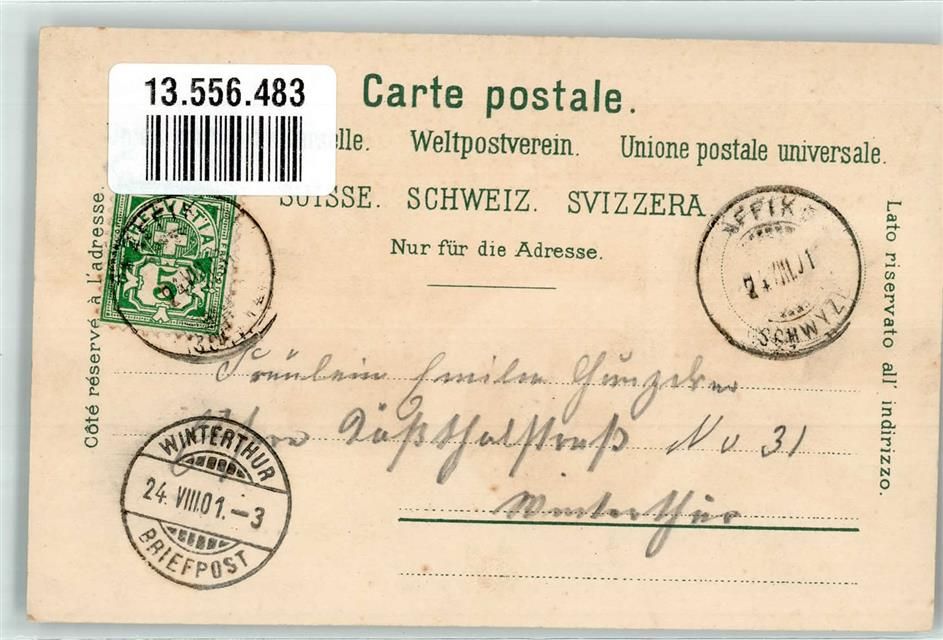 13.556.483
Carte postale.
Weltpostverein. Unione postale universale.
SUISSE. SCHWEIZ. SVIZZERA.
Nur für die Adresse.
Côté réservé à l'adresse.
Lato riservato all' indirizzo.
HELVETIA
5
EFFIK
24 VIII.01
Fräulein Emilie
No 31
Winterthur
WINTERTHUR
24. VIII.01.–3
BRIEFPOST